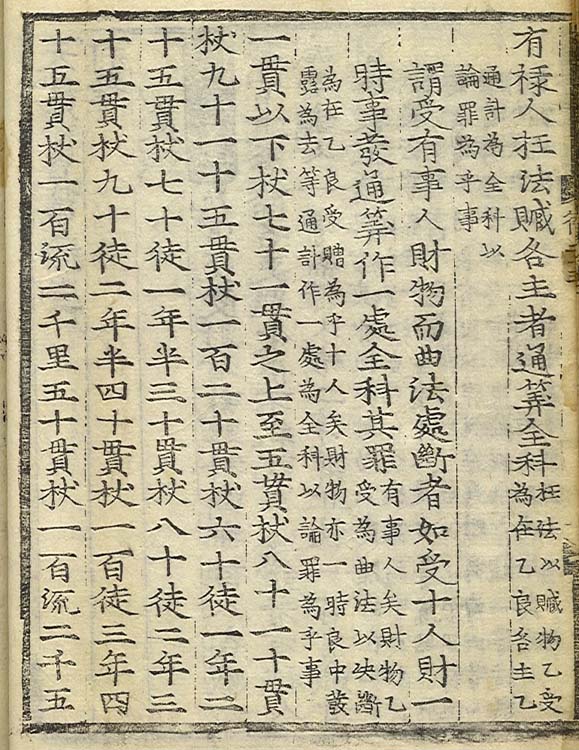 有禄人枉法贓各主者通筭全科
枉法以贓物乙受
為在乙良各主乙
通計為全科以
論罪為乎事
謂受有事人財物而曲法處斷者如受十人財一
時事發通筭作一處全科其罪
有事人矣財物乙
受為曲法以决斷
為在乙良受贈為乎十人矣財物亦一時良中發
露為去等通計作一處為全科以論罪為乎事
一貫以下杖七十一貫之上至五貫杖八十一十貫
杖九十一十五貫杖一百二十貫杖六十徒一年二
十五貫杖七十徒一年半三十貫杖八十徒二年三
十五貫杖九十徒二年半四十貫杖一百徒三年四
十五貫杖一百流二千里五十貫杖一百流二千五